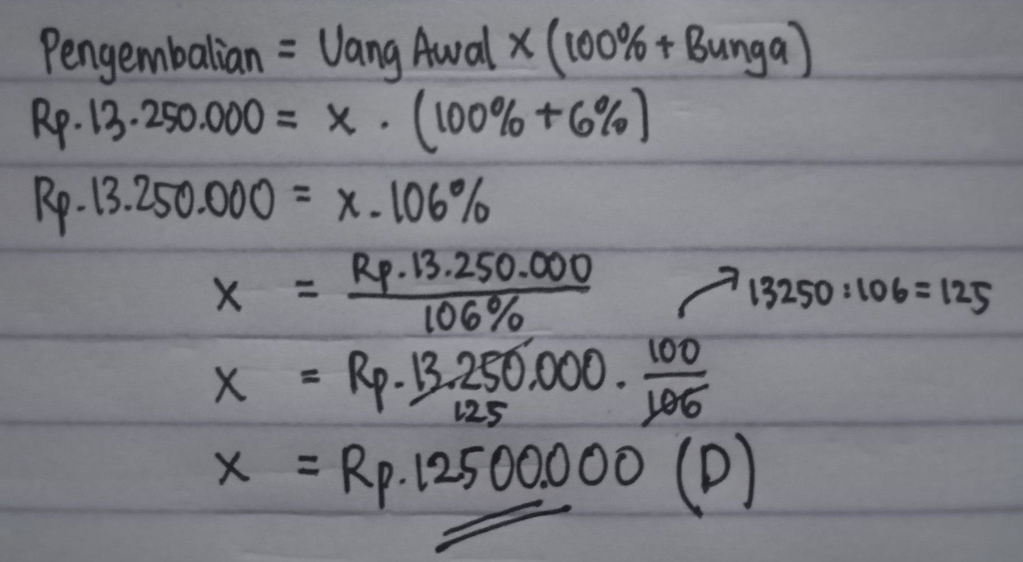 Pengembalian = Uang Awal x (100% + Bunga)
Rp. 13.250.000 = x . (100% + 6%)
Rp. 13.250.000 = x . 106%
x = Rp. 13.250.000 / 106%
13250 : 106 = 125
x = Rp. 13.250.000 . 100 / 106
125
x = Rp. 12500.000 (D)